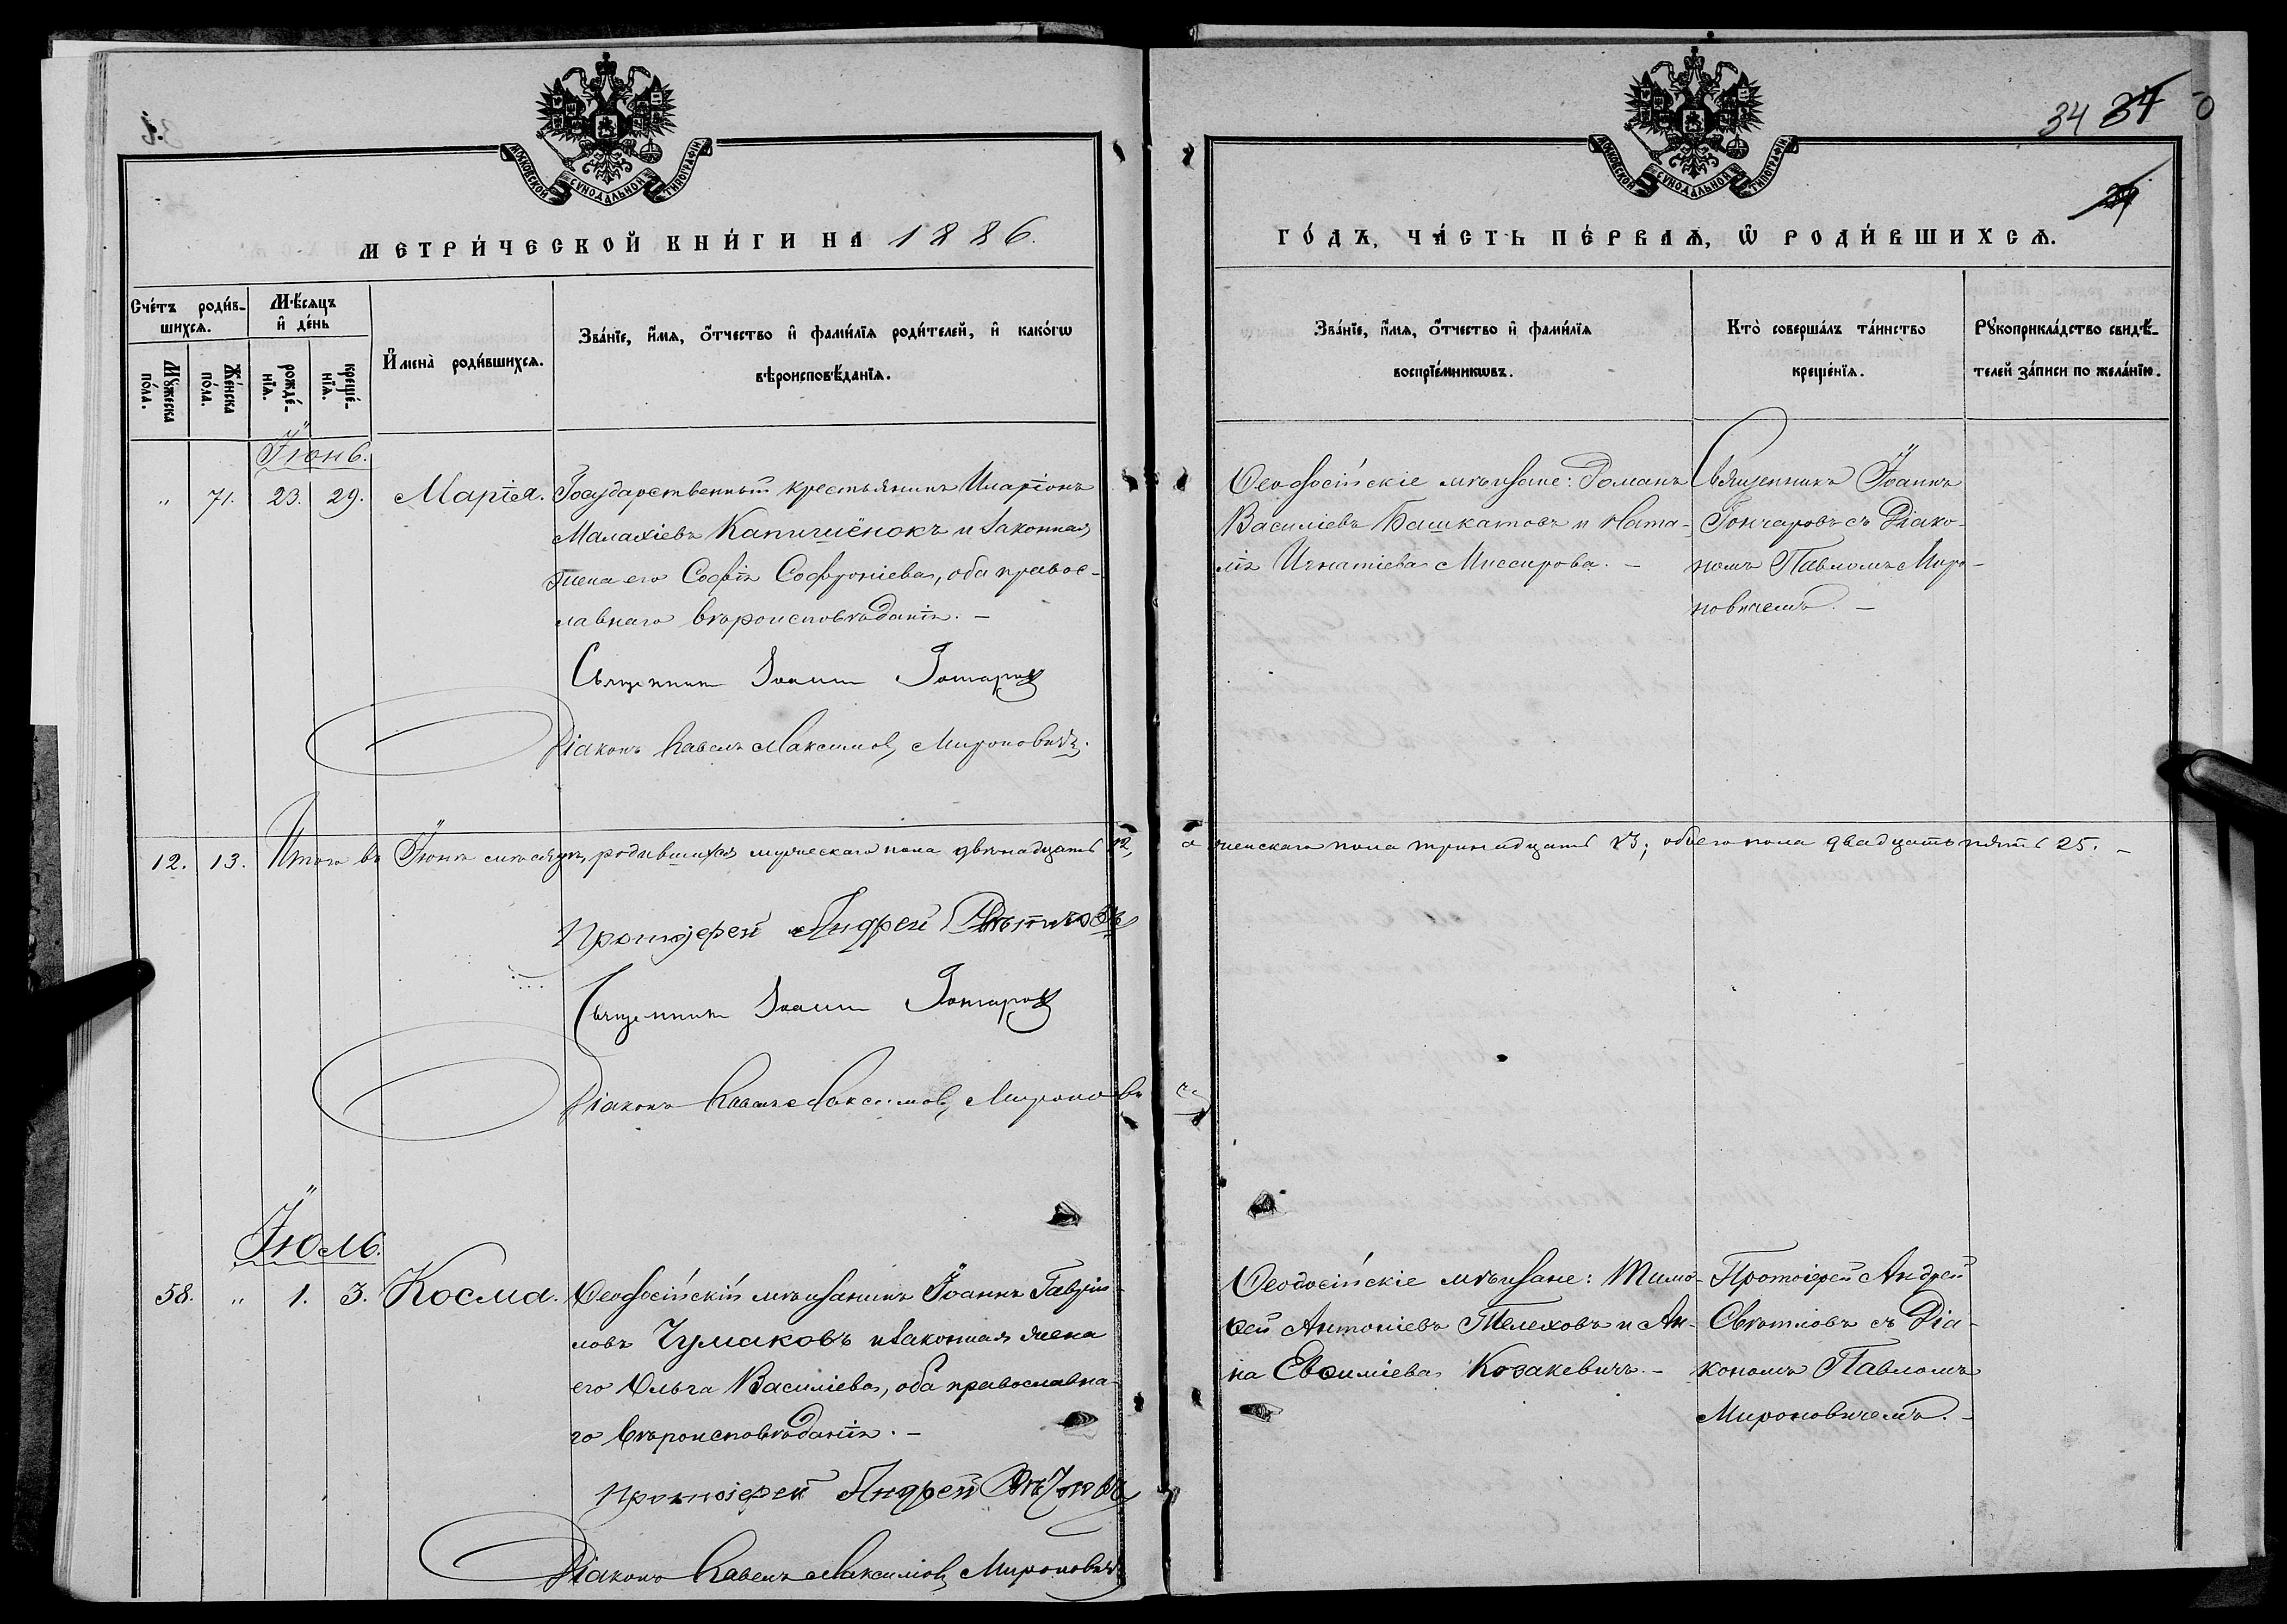 МОСКОВСКОЙ СѴНОДАЛЬНОЙ ТИПОГРАФІИ
МЕТРИ́ЧЕСКОЙ КНИ́ГИ НА 1886.
Сче́тъ роди́в-
шихсѧ.
Мѣ́сяцъ
и҆ де́нь
Мꙋ́жеска
по́ла.
Же́нска
по́ла.
рожде́-
нїѧ.
креще́-
нїѧ.
И҆мена̀ роди́вшихсѧ.
Зва́нїе, и҆́мѧ, ѻ҆́тчество и҆ фами́лїѧ роди́телей, и҆ како́гѡ
вѣроисповѣ́данїѧ.
Іюнь.
" 71. 23. 29. Марія. Государственный крестьянинъ Иларіонъ
Малахіевъ Капичіёнокъ и законная
жена его Софія Софроніева, оба правос-
лавнаго вѣроисповѣданія. –
Священникъ Іоаннъ Гончаровъ
Діаконъ Павелъ Максимов. Мироновичъ.
12. 13. Итого въ Іюнѣ мѣсяцѣ родившихся мужескаго пола двѣнадцать 12,
Протоіерей Андрей Свѣтловъ
Священникъ Іоаннъ Гончаровъ
Діаконъ Павелъ Максимов. Мироновичъ
Іюль.
58. " 1. 3. Косма. Ѳеодосійскій мѣщанинъ Іоаннъ Гавріи-
ловъ Чумаковъ и законная жена
его Ольга Васильева, оба православна-
го вѣроисповѣданія. –
Протоіерей Андрей Свѣтловъ
Діаконъ Павелъ Максимов. Мироновичъ
34 34
МОСКОВСКОЙ СѴНОДАЛЬНОЙ ТИПОГРАФІИ
ГО́ДЪ, ЧА́СТЬ ПЕ́РВАѦ, Ѽ РОДИ́ВШИХСѦ.
Зва́нїе, и҆́мѧ, ѻ҆́тчество и҆ фами́лїѧ
воспрїе́мникѡвъ.
Кто̀ соверша́лъ та́инство
креще́нїѧ.
Рꙋкоприкла́дство свидѣ́-
телей за́писи по жела́нїю.
Ѳеодосійскіе мѣщане: Романъ
Василіевъ Башкатовъ и Ната-
лія Игнатіева Миссирова. –
Священникъ Іоаннъ
Гончаровъ съ Діако-
номъ Павломъ Миро-
новичемъ. –
а женскаго пола тринадцать 13; обоего пола двадцать пять 25. –
Ѳеодосійскіе мѣщане: Тимо-
ѳей Антоніевъ Телеховъ и Ан-
на Евѳиміева Козакевичъ. –
Протоіерей Андрей
Свѣтловъ съ Діа-
кономъ Павломъ
Мироновичемъ. –